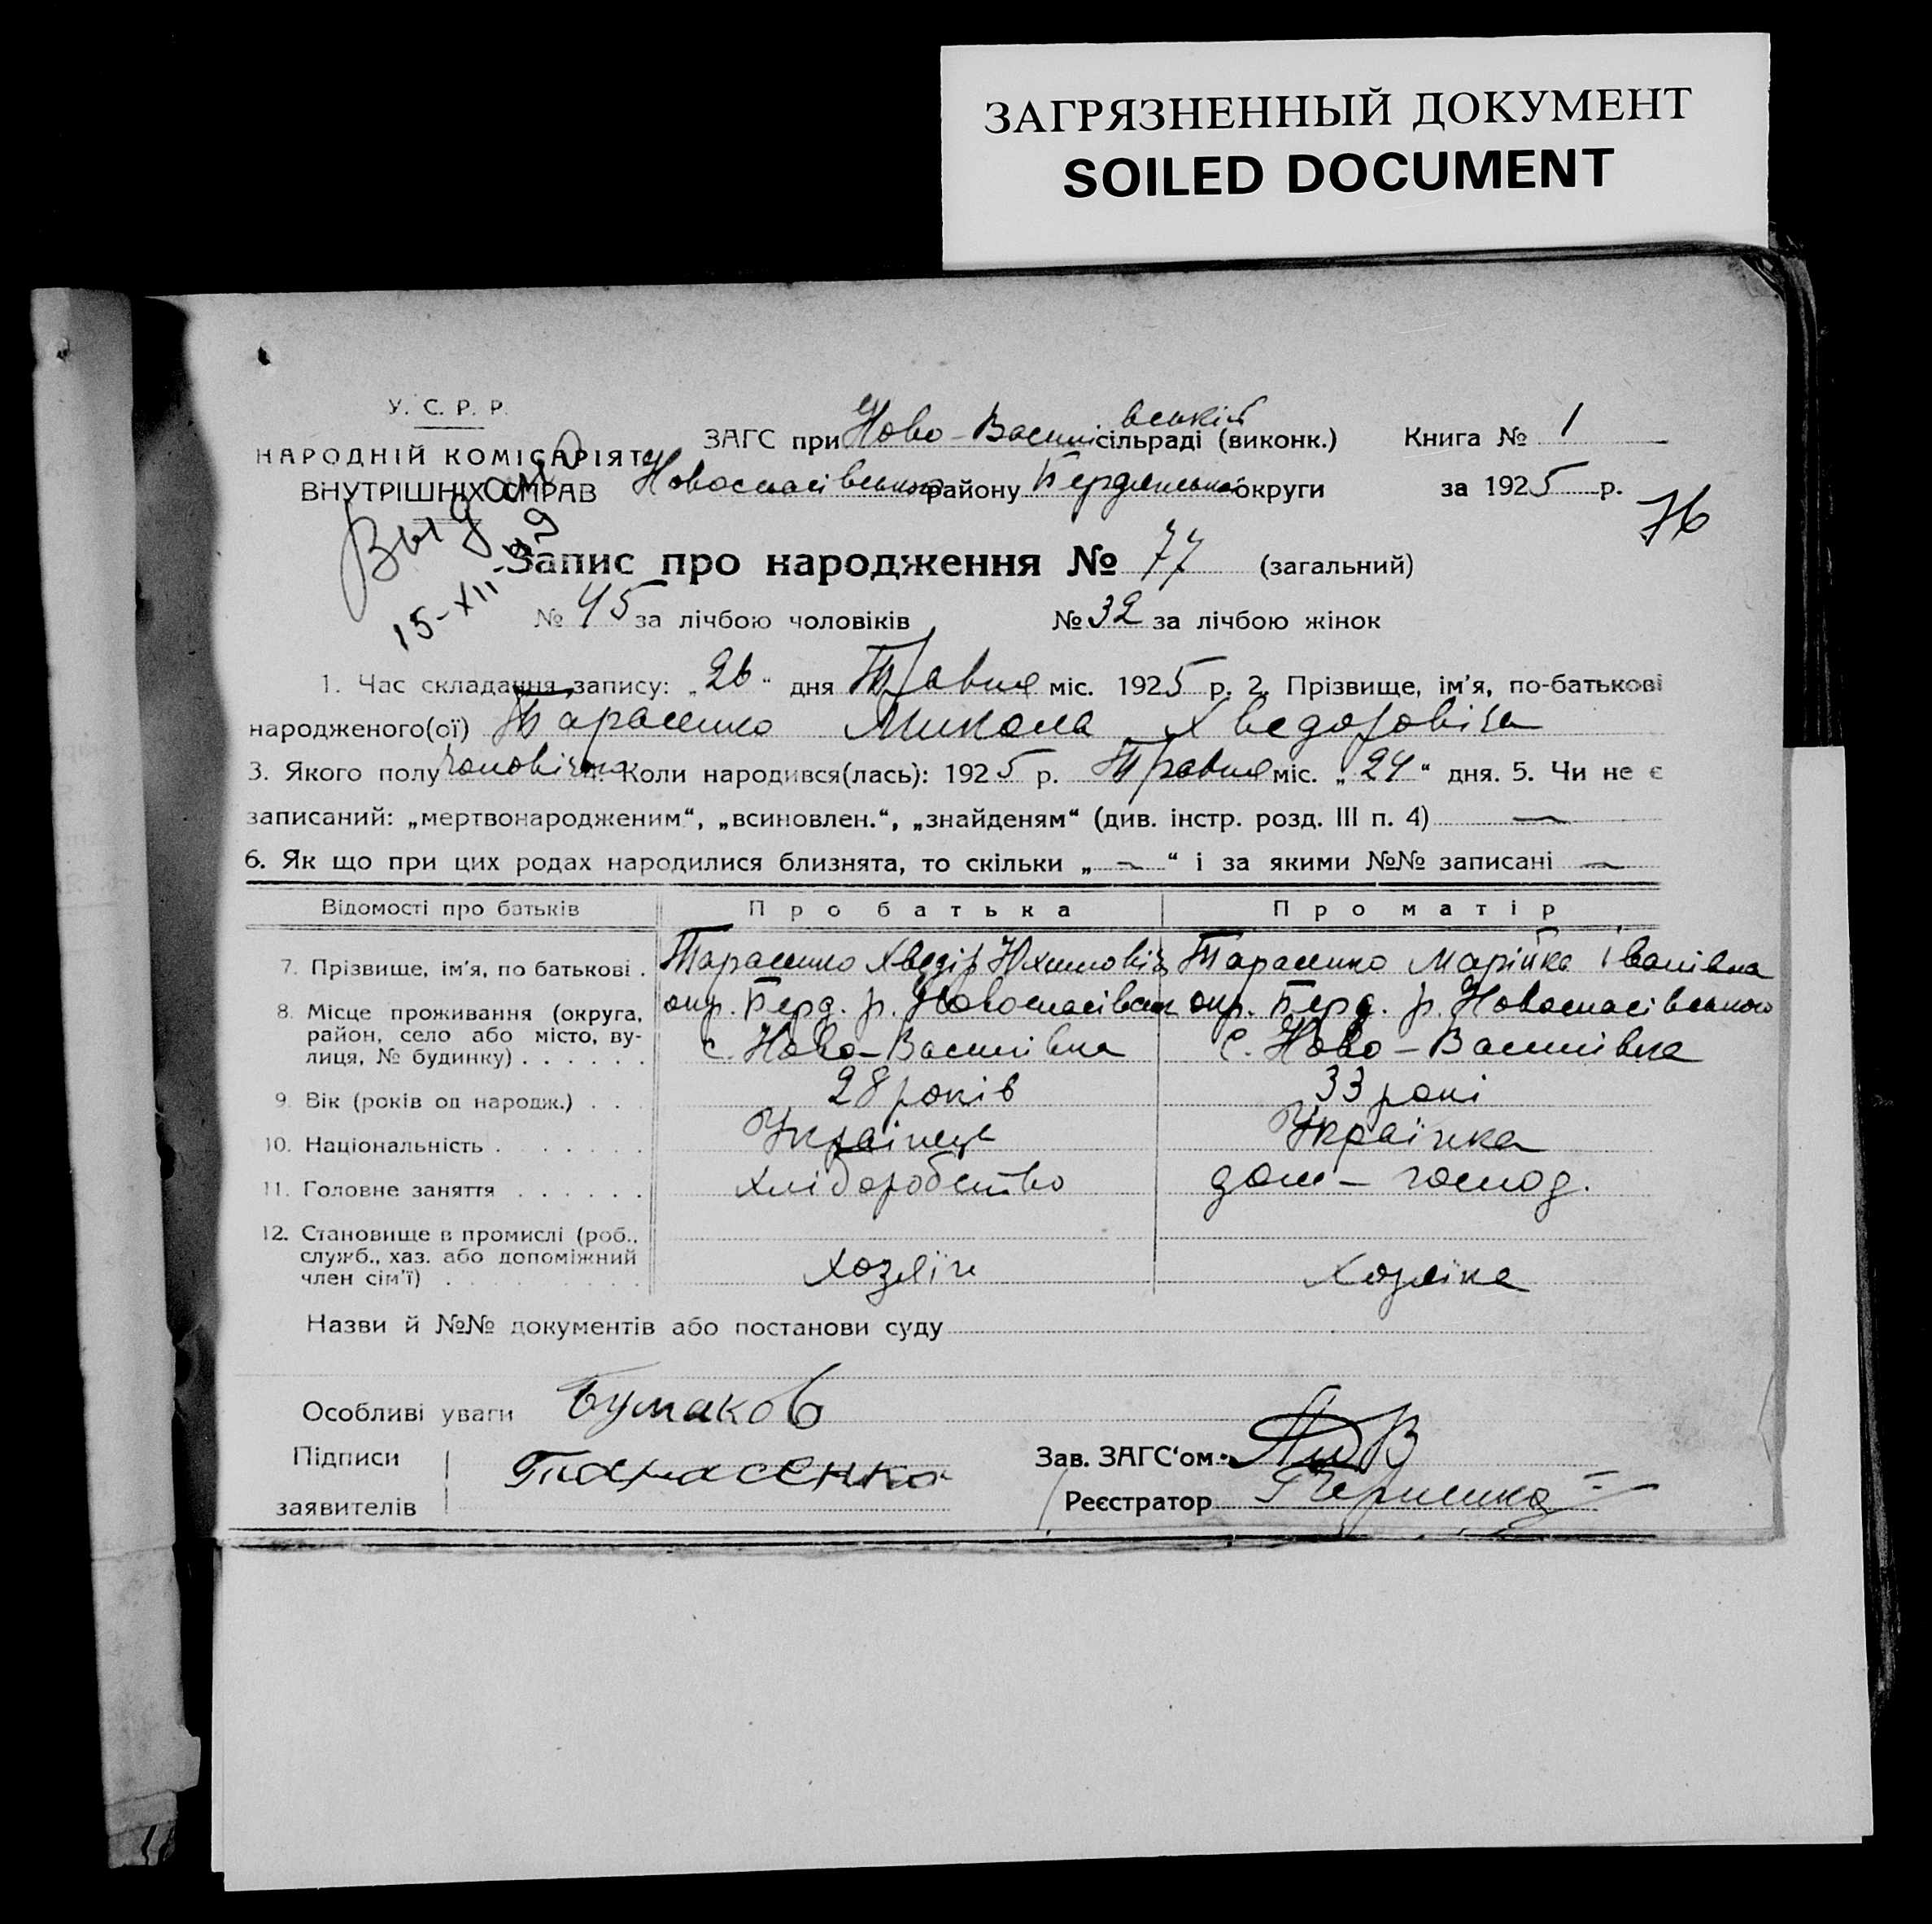 ЗАГРЯЗНЕННЫЙ ДОКУМЕНТ
SOILED DOCUMENT
У. С. Р. Р.
НАРОДНІЙ КОМІСАРІЯТ
ВНУТРІШНІХ СПРАВ
ЗАГС при Ново-Василівській сільраді (виконк.) Книга № 1
Новоспасівського району Бердянської округи за 1925 р.
76
15-XII-
Запис про народження № 77 (загальний)
№ 45 за лічбою чоловіків № 32 за лічбою жінок
1. Час складання запису: „26" дня Травня міс. 1925 р. 2. Прізвище, ім'я, по-батькові
народженого(ої) Тарасенко Микола Хведоровіч
3. Якого полу Коли народився(лась): 1925 р. Травня міс. „24" дня. 5. Чи не є
записаний: „мертвонародженим", „всиновлен.", „знайденям" (див. інстр. розд. III п. 4) —
6. Як що при цих родах народилися близнята, то скільки „—" і за якими №№ записані —
Відомості про батьків Про батька Про матір
7. Прізвище, ім'я, по батькові . Тарасенко Хведір Юхимовіч Тарасенко Марійка Іванівна
8. Місце проживання (округа, район, село або місто, вулиця, № будинку) . . . . . .
окр. Берд. р. Новоспасівськ окр. Берд. р. Новоспасівського
с. Ново-Василівка с. Ново-Василівка
9. Вік (років од народж.) . . . 28 років 33 рокі
10. Національність . . . . . . . Українець Українка
11. Головне заняття . . . . . . Хліборобство дом-господ.
12. Становище в промислі (роб., служб., хаз. або допоміжний член сім'ї) . . . . . . . . .
Хозяїн Хозяїка
Назви й №№ документів або постанови суду
Особливі уваги Бумаков
Підписи Тарасенко Зав. ЗАГС'ом
заявителів Реєстратор